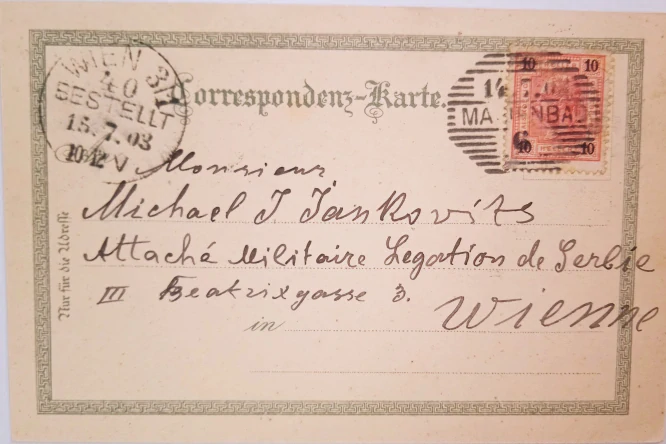 WIEN 3/1
40
BESTELLT
15.7.03
Correspondenz-Karte.
14.7.0
MARIENBAD
6
10 10
10 10
Monsieur
Michael J Jankovits
Attaché Militaire Legation de Serbie
III Beatrixgasse 3.
in Wienne
Nur für die Adresse